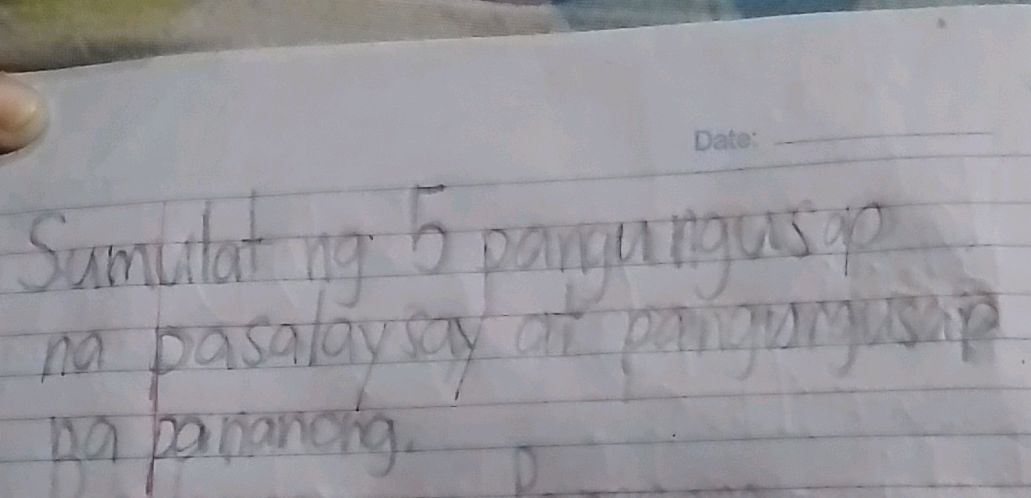 Date:
Sumulat ng 5 pangungusap
na pasalaysay at pangungusap
na pananong.